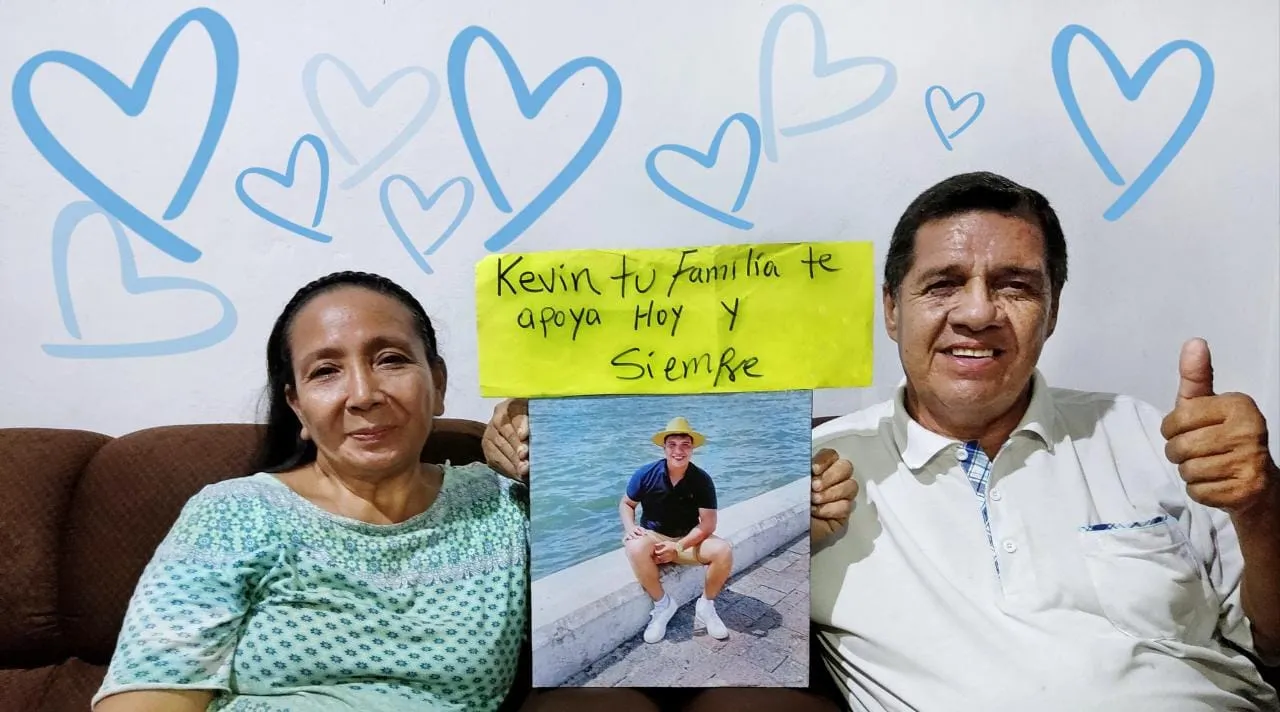 Kevin tu Familia te
apoya Hoy y
Siempre